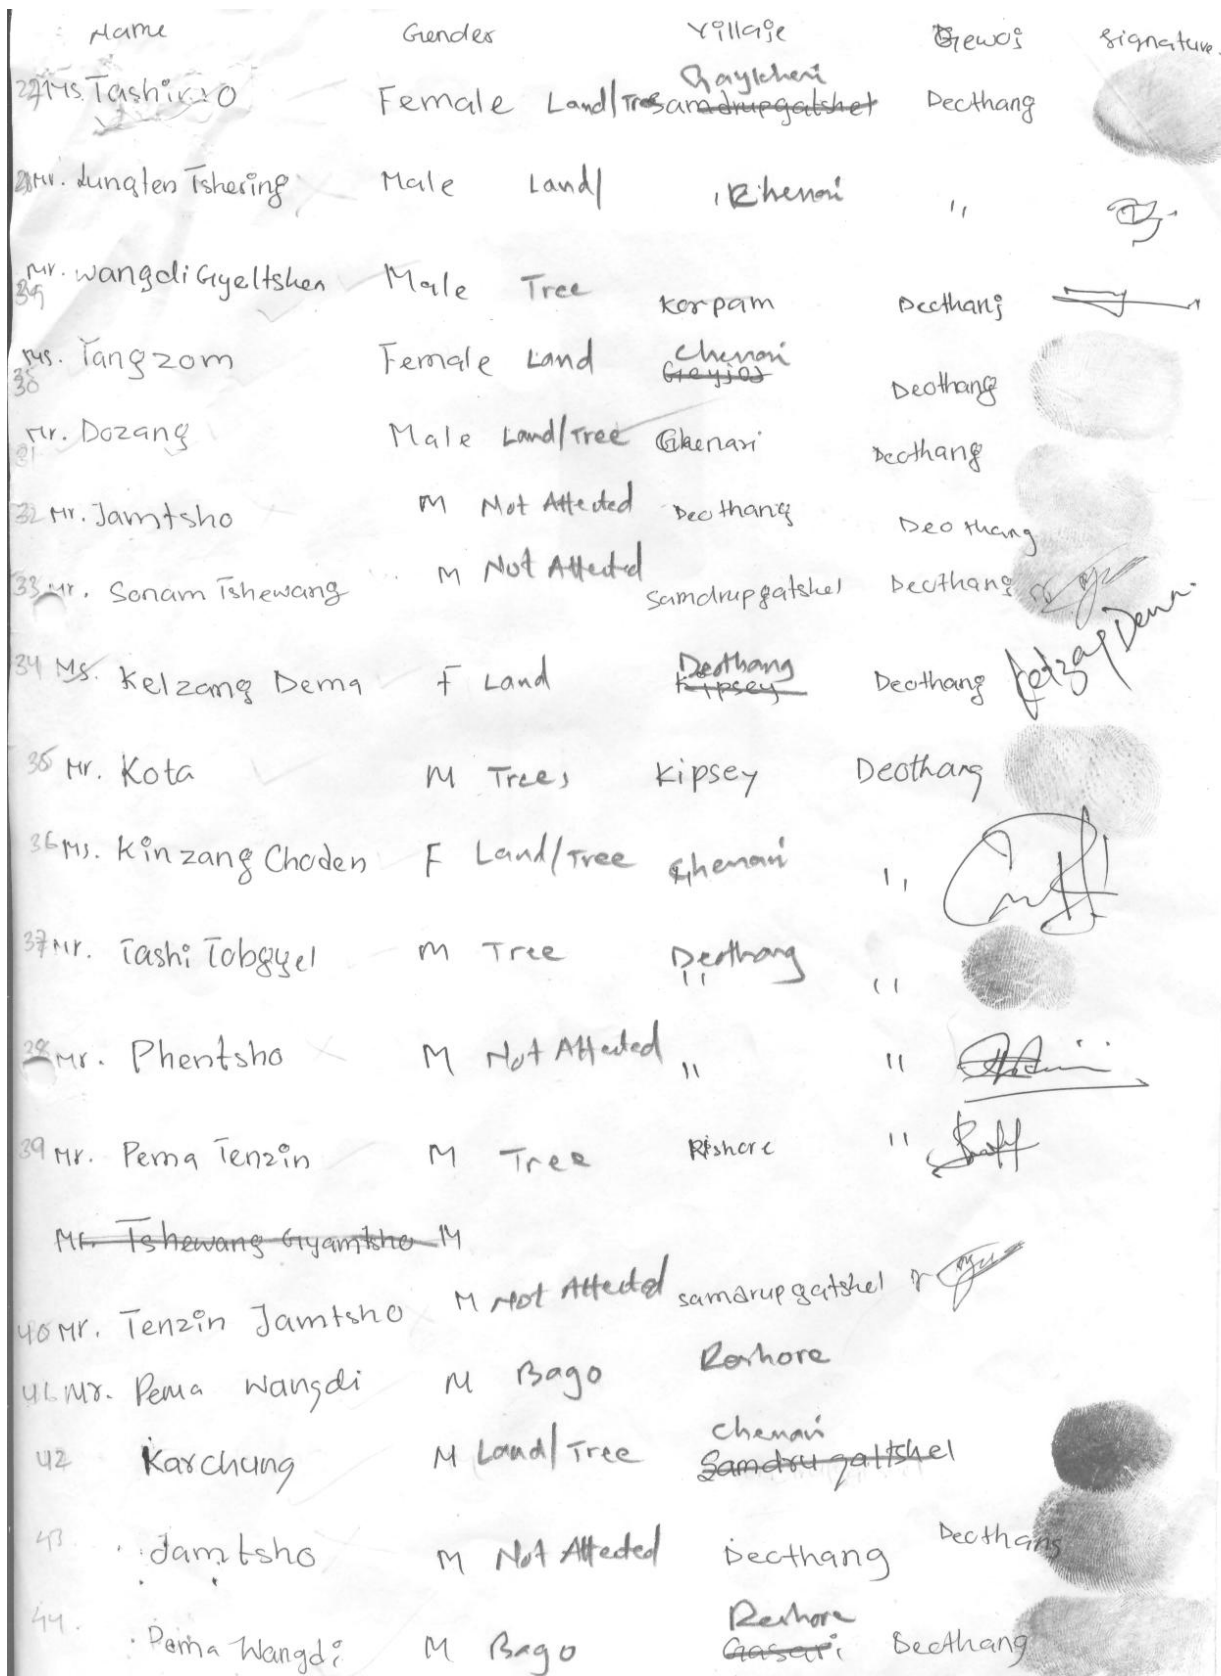 Name Gender Village Gewog Signature.
Gaykheri
27 Ms. Tashi Female Land/Tree Samdrupgatshel Deothang
28 Mr. Lungten Tshering Male Land/ Chenari ,,
Mr. Wangdi Gyeltshen Male Tree Korpam Deothang
29
Ms. Tangzom Female Land Chenari Deothang
30
Mr. Dozang Male Land/Tree Chenari Deothang
31
32 Mr. Jamtsho M Not Affected Deothang Deothang
33 Mr. Sonam Tshewang M Not Affected Samdrupgatshel Deothang
Deothang
34 Ms. Kelzang Dema F Land Kipsey Deothang Kelzang Dema
35 Mr. Kota M Trees Kipsey Deothang
36 Ms. Kinzang Choden F Land/Tree Chenari ,,
37 Mr. Tashi Tobgyel M Tree Deothang ,,
38 Mr. Phentsho M Not Affected ,, ,,
39 Mr. Pema Tenzin M Tree Rishore ,,
Mr. Tshewang Gyamtsho M
40 Mr. Tenzin Jamtsho M Not Affected Samdrupgatshel
41 Mr. Pema Wangdi M Bago Reshore
Chenari
42 Karchung M Land/Tree Samdrugattshel
43 Jamtsho M Not Affected Deothang Deothang
Reshore
44. Pema Wangdi M Bago Gasari Deothang